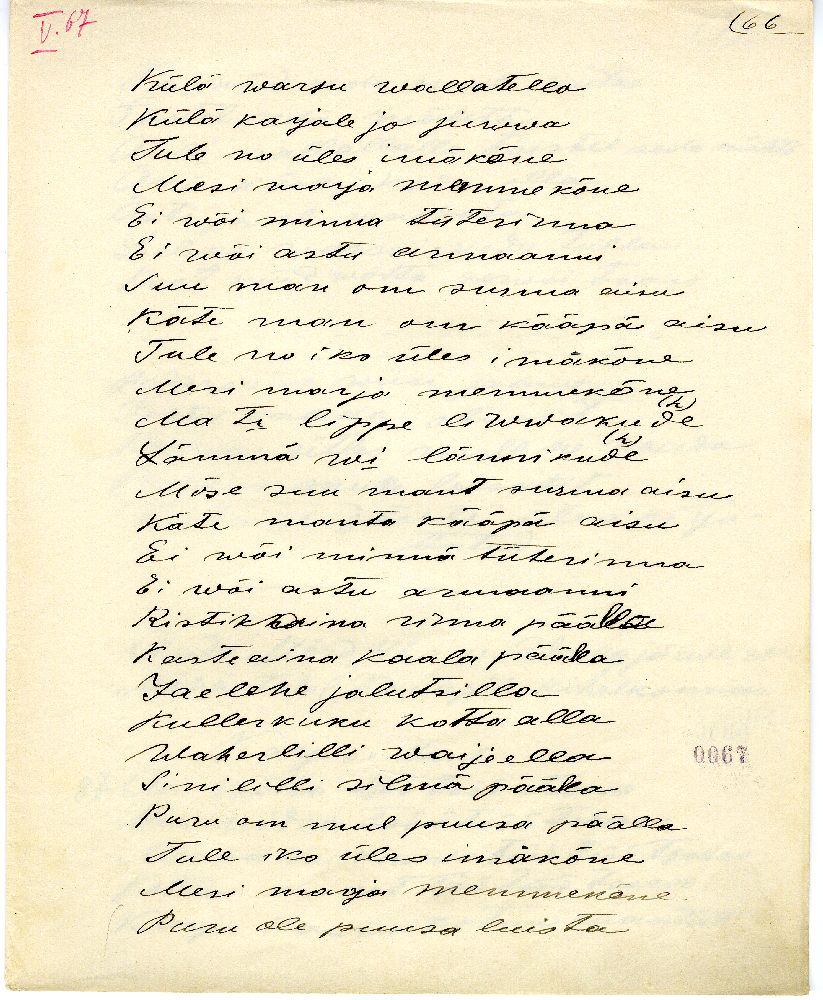 V.67
(66
Külä warsu wallatella
Külä karjale jo juwwa
Tule no üles imäkõne
Mesi marja memmekõne
Ei wõi minna tüterinna
Ei wõi astu armaanni
Suu man om surma aisu
Käte man om kääpä aisu
Tule no iks üles imäkõne
Mesi marja memmekõne
Ma ti lippe liwwaku(h)de
Lämmä wi länniku(h)de
Mõse suu mant surma aisu
Käte manta kääpä aisu
Ei wõi minnä tüterinna
Ei wõi astu armaanni
Ristikhaina rinna päälla
Kasteaina kaala päälla
Jaelehe jalutsilla
Kullerkuku kotta alla
Waherlilli waijeella
Sinililli silmä päälla
Puru om mul puusa päälla
Tule iks üles imäkõne
Mesi marja memmekõne
Puru ole puusa luista
0067